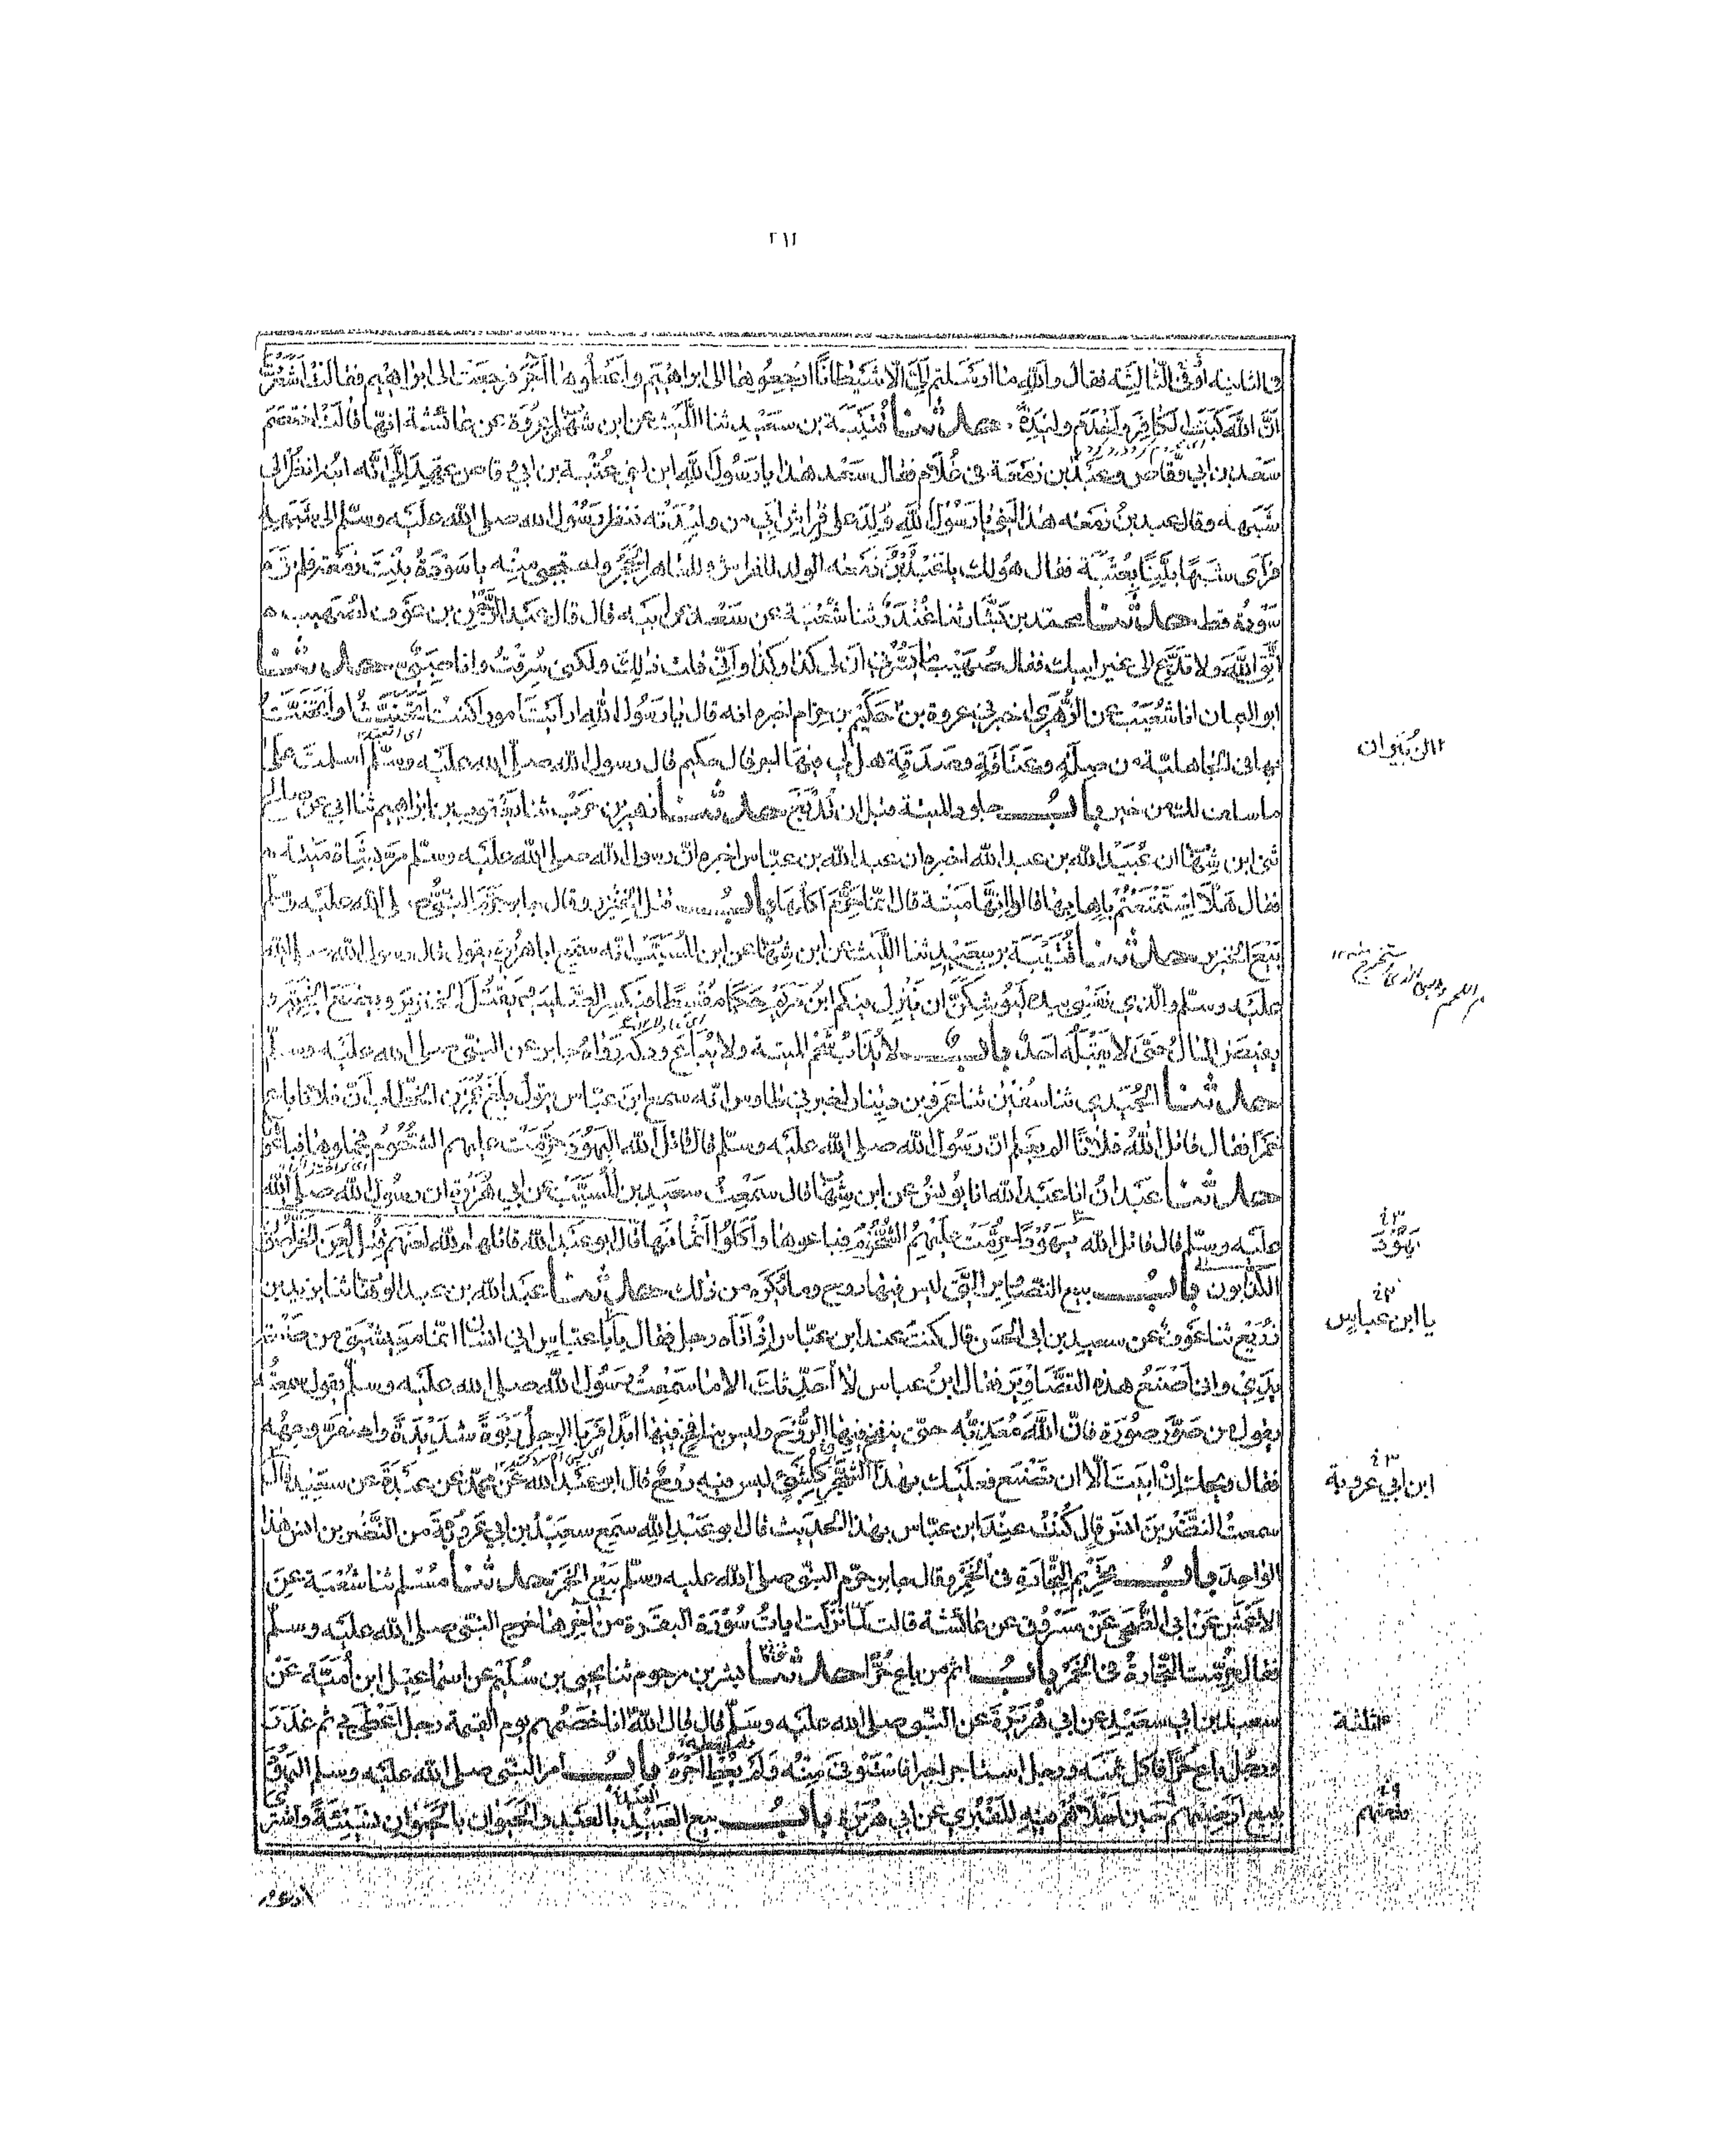 ٢١٢
في الثانية أو في الثالثة فقال والله ما أرسلتم إليّ إلا شيطانًا ارجعوها إلى ابراهيم وأعطوها آجر فرجعت إلى ابراهيم فقالت أشعرت
أنّ الله كبت الكافر وأخدم وليدة حدثنا قتيبة بن سعيد ثنا الليث عن ابن شهاب عن عروة عن عائشة انها قالت اختصم
سعد بن ابي وقاص وعبد بن زمعة في غلام فقال سعد هذا يا رسول الله ابن اخي عتبة بن ابي وقاص عهد إليّ انه ابنه انظر الى
شبهه وقال عبد بن زمعه هذا اخي يا رسول الله ولد على فراش ابي من وليدته فنظر رسول الله صلى الله عليه وسلم الى شبهه
فرأى شبهًا بيّنًا بعتبة فقال هو لك يا عبد بن زمعه الولد للفراش وللعاهر الحجر واحتجبي منه يا سودة بنت زمعة فلم تره
سودة قط حدثنا محمد بن بشار ثنا غندر ثنا شعبة عن سعد عن ابيه قال قال عبد الرحمن بن عوف لصهيب
اتّق الله ولا تدّع الى غير ابيك فقال صهيب ما يسرّني أن لي كذا وكذا وأني قلت ذلك ولكني سُرقت وانا صبيّ حدثنا
ابو اليمان انا شعيب عن الزهري اخبرني عروة بن الزبير ان حكيم بن حزام اخبره انه قال يا رسول الله ارأيت أمورا كنت اتحنّث او اتحنّت
بها في الجاهلية من صلة وعتاقة وصدقة هل لي فيها اجر قال حكيم قال رسول الله صلى الله عليه وسلّم أسلمت على
ما سلف لك من خير باب جلود الميتة قبل ان تدبغ حدثنا زهير بن حرب ثنا يعقوب بن ابراهيم ثنا ابي عن صالح
ثني ابن شهاب ان عبيد الله بن عبد الله اخبره ان عبد الله بن عباس اخبره انّ رسول الله صلى الله عليه وسلّم مرّ بشاة ميتة
فقال هلّا استمتعتم بإهابها قالوا إنها ميتة قال انّما حرم أكلها باب قتل الخنزير وقال جابر حرّم النبيّ صلى الله عليه وسلّم
بيع الخنزير حدثنا قتيبة بن سعيد ثنا الليث عن ابن شهاب عن ابن المسيّب انّه سمع ابا هريرة يقول قال رسول الله صلى الله
عليه وسلّم والذي نفسي بيده ليوشكنّ ان ينزل فيكم ابن مريم حكمًا مقسطًا فيكسر الصليب ويقتل الخنزير ويضع الجزية و
يفيض المال حتى لا يقبله احد باب لا يذاب شحم الميتة ولا يباع ودكه رواه جابر عن النبيّ صلى الله عليه وسلّم
حدثنا الحميدي ثنا سفين ثنا عمرو بن دينار اخبرني طاوس انّه سمع ابن عبّاس يقول بلغ عمر بن الخطاب أنّ فلانا باع
خمرا فقال قاتل الله فلانًا الم يعلم انّ رسول الله صلى الله عليه وسلّم قال قاتل الله اليهود حرّمت عليهم الشحوم فجملوها فباعوها
حدثنا عبدان انا عبد الله انا يونس عن ابن شهاب قال سمعت سعيد بن المسيّب عن ابي هريرة ان رسول الله صلى الله
عليه وسلّم قال قاتل الله يهودًا حرّمت عليهم الشحوم فباعوها وأكلوا أثمانها قال ابو عبد الله قاتلهم الله لعنهم قُتل لُعن الخرّاصون
الكذّابون باب بيع التصاوير التي ليس فيها روح وما يكره من ذلك حدثنا عبد الله بن عبد الوهاب ثنا يزيد بن
زريع ثنا عوف عن سعيد بن ابي الحسن قال كنت عند ابن عبّاس إذ أتاه رجل فقال يا أبا عبّاس اني انسان انّما معيشتي من صنعة
يدي واني اصنع هذه التصاوير فقال ابن عباس لا أحدّثك الا ما سمعت رسول الله صلى الله عليه وسلم يقول سمعته
يقول من صوّر صورة فانّ الله معذّبه حتى ينفخ فيها الروح وليس بنافخ فيها ابدًا فربا الرجل ربوة شديدة واصفرّ وجهه
فقال ويحك إن أبيت الّا ان تصنع فعليك بهذا الشجر كلّ شيء ليس فيه روح قال ابو عبد الله عن محمد عن عبدة عن سعيد قال
سمعت النضر بن انس قال كنت عند ابن عبّاس بهذا الحديث قال ابو عبد الله سمع سعيد بن ابي عروبة من النضر بن انس هذا
الواحد باب تحريم التجارة في الخمر وقال جابر حرّم النبيّ صلى الله عليه وسلّم بيع الخمر حدثنا مسلم ثنا شعبة عن
الاعمش عن ابي الضحى عن مسروق عن عائشة قالت لمّا نزلت ايات سورة البقرة من آخرها خرج النبيّ صلى الله عليه وسلم
فقال حرّمت التجارة في الخمر باب اثم من باع حرًّا حدثنا بشر بن مرحوم ثنا يحيى بن سليم عن اسماعيل ابن أميّة عن
سعيد بن ابي سعيد عن ابي هريرة عن النبيّ صلى الله عليه وسلّم قال قال الله انا خصمهم يوم القيمة رجل أعطى بي ثم غدر
ورجل باع حرًّا فأكل ثمنه ورجل استاجر اجيرا فاستوفى منه ولم يعط اجره باب امر النبيّ صلى الله عليه وسلم اليهود
ببيع أرضيهم حين اجلاهم فيه المقبري عن ابي هريرة باب بيع العبيد بالعبد والحيوان بالحيوان نسيئة واشترى
يهودَ
يا ابن عباس
ابن ابي عروبة
ثلثة